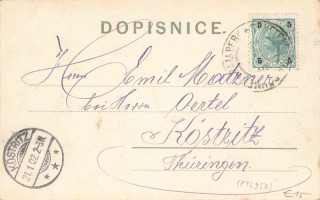 DOPISNICE.
5 5
5 5
Herrn Emil
bei Herrn Oertel
Köstritz
Thüringen.
KÖSTRITZ
21.1.02.2-3N.
€15